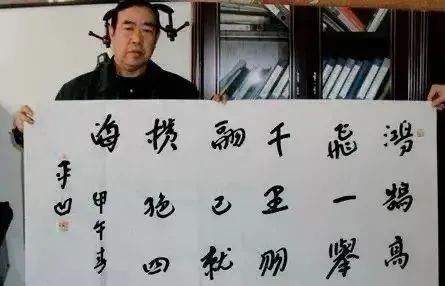 鸿鹄高
飛一舉
千里羽
翮已就
横绝四
海
甲午春
平凹